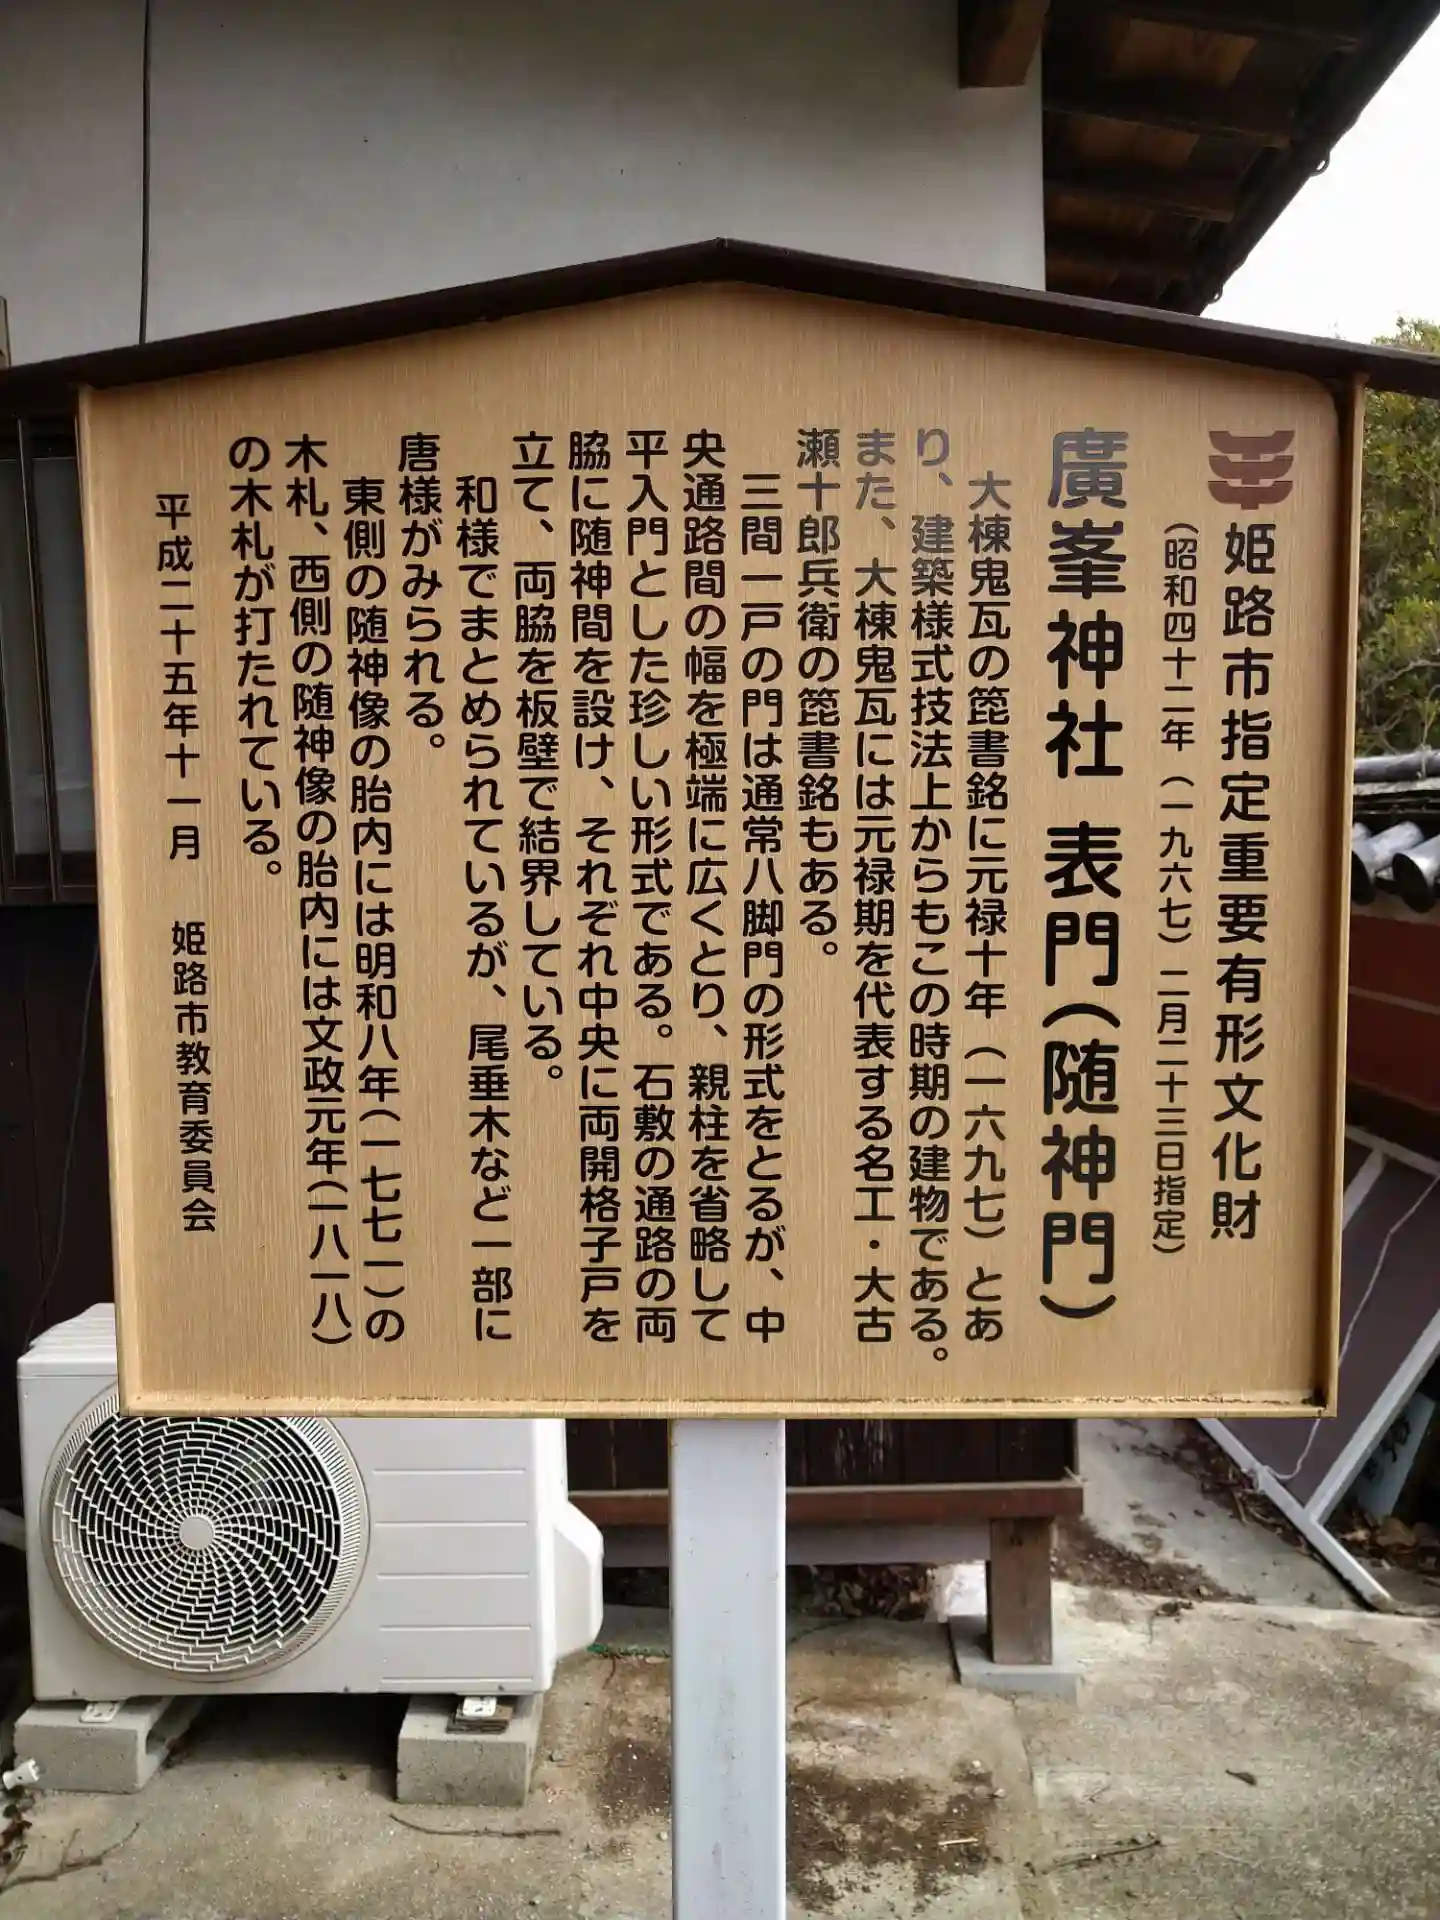 姫路市指定重要有形文化財
(昭和四十二年(一九六七)二月二十三日指定)
廣峯神社 表門(随神門)
大棟鬼瓦の箆書銘に元禄十年(一六九七)とあ
り、建築様式技法上からもこの時期の建物である。
また、大棟鬼瓦には元禄期を代表する名工・大古
瀬十郎兵衛の箆書銘もある。
三間一戸の門は通常八脚門の形式をとるが、中
央通路間の幅を極端に広くとり、親柱を省略して
平入門とした珍しい形式である。石敷の通路の両
脇に随神間を設け、それぞれ中央に両開格子戸を
立て、両脇を板壁で結界している。
和様でまとめられているが、尾垂木など一部に
唐様がみられる。
東側の随神像の胎内には明和八年(一七七一)の
木札、西側の随神像の胎内には文政元年(一八一八)
の木札が打たれている。
平成二十五年十一月 姫路市教育委員会